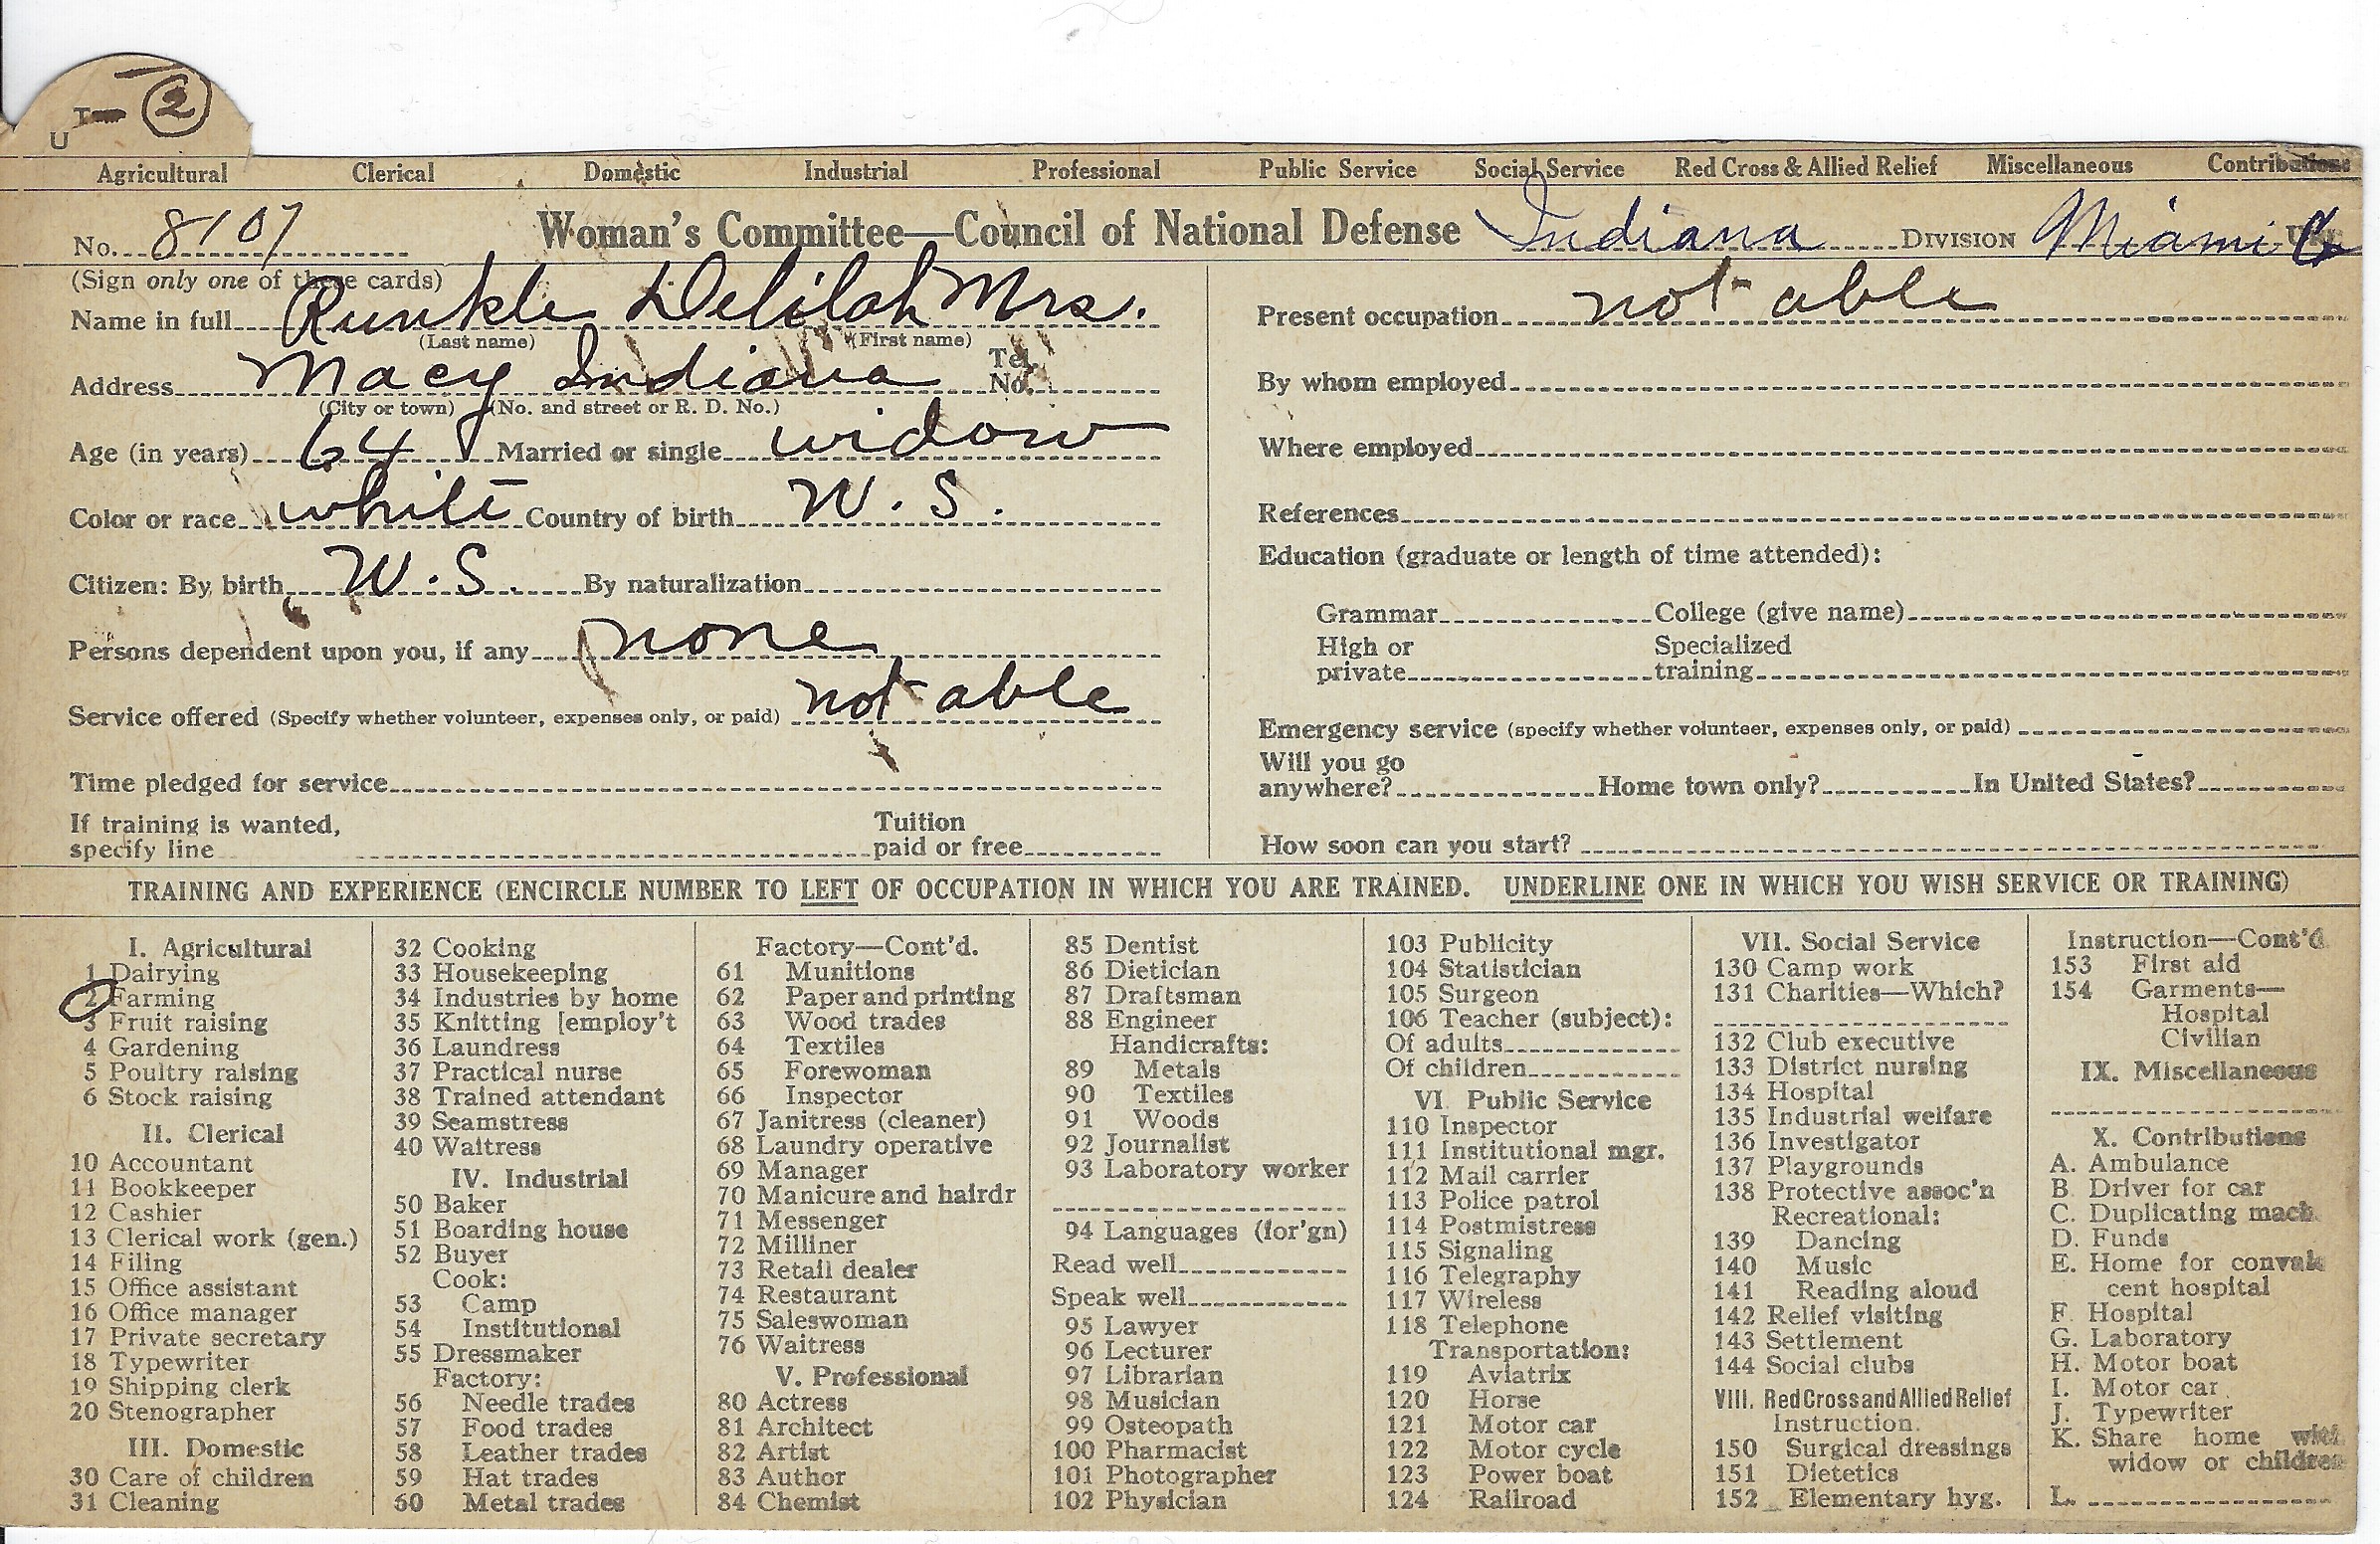 T (2)
U
Agricultural Clerical Domestic Industrial Professional Public Service Social Service Red Cross & Allied Relief Miscellaneous Contributions
No. 8107 Woman's Committee—Council of National Defense Indiana DIVISION Miami Co
(Sign only one of these cards)
Name in full Runkle Delilah Mrs.
(Last name) (First name)
Address Macy Indiana Tel. No.
(City or town) (No. and street or R. D. No.)
Age (in years) 64 Married or single widow
Color or race white Country of birth U. S.
Citizen: By birth U. S. By naturalization
Persons dependent upon you, if any none
Service offered (Specify whether volunteer, expenses only, or paid) not able
Time pledged for service
If training is wanted, specify line Tuition paid or free
Present occupation not able
By whom employed
Where employed
References
Education (graduate or length of time attended):
Grammar College (give name)
High or private Specialized training
Emergency service (specify whether volunteer, expenses only, or paid)
Will you go anywhere? Home town only? In United States?
How soon can you start?
TRAINING AND EXPERIENCE (ENCIRCLE NUMBER TO LEFT OF OCCUPATION IN WHICH YOU ARE TRAINED. UNDERLINE ONE IN WHICH YOU WISH SERVICE OR TRAINING)
I. Agricultural
1 Dairying
2 Farming
3 Fruit raising
4 Gardening
5 Poultry raising
6 Stock raising
II. Clerical
10 Accountant
11 Bookkeeper
12 Cashier
13 Clerical work (gen.)
14 Filing
15 Office assistant
16 Office manager
17 Private secretary
18 Typewriter
19 Shipping clerk
20 Stenographer
III. Domestic
30 Care of children
31 Cleaning
32 Cooking
33 Housekeeping
34 Industries by home
35 Knitting [employ't
36 Laundress
37 Practical nurse
38 Trained attendant
39 Seamstress
40 Waitress
IV. Industrial
50 Baker
51 Boarding house
52 Buyer
Cook:
53 Camp
54 Institutional
55 Dressmaker
Factory:
56 Needle trades
57 Food trades
58 Leather trades
59 Hat trades
60 Metal trades
Factory—Cont'd.
61 Munitions
62 Paper and printing
63 Wood trades
64 Textiles
65 Forewoman
66 Inspector
67 Janitress (cleaner)
68 Laundry operative
69 Manager
70 Manicure and hairdr
71 Messenger
72 Milliner
73 Retail dealer
74 Restaurant
75 Saleswoman
76 Waitress
V. Professional
80 Actress
81 Architect
82 Artist
83 Author
84 Chemist
85 Dentist
86 Dietician
87 Draftsman
88 Engineer
Handicrafts:
89 Metals
90 Textiles
91 Woods
92 Journalist
93 Laboratory worker
94 Languages (for'gn)
Read well
Speak well
95 Lawyer
96 Lecturer
97 Librarian
98 Musician
99 Osteopath
100 Pharmacist
101 Photographer
102 Physician
103 Publicity
104 Statistician
105 Surgeon
106 Teacher (subject):
Of adults
Of children
VI. Public Service
110 Inspector
111 Institutional mgr.
112 Mail carrier
113 Police patrol
114 Postmistress
115 Signaling
116 Telegraphy
117 Wireless
118 Telephone
Transportation:
119 Aviatrix
120 Horse
121 Motor car
122 Motor cycle
123 Power boat
124 Railroad
VII. Social Service
130 Camp work
131 Charities—Which?
132 Club executive
133 District nursing
134 Hospital
135 Industrial welfare
136 Investigator
137 Playgrounds
138 Protective assoc'n
Recreational:
139 Dancing
140 Music
141 Reading aloud
142 Relief visiting
143 Settlement
144 Social clubs
VIII. Red Cross and Allied Relief
Instruction.
150 Surgical dressings
151 Dietetics
152 Elementary hyg.
Instruction—Cont'd
153 First aid
154 Garments—
Hospital
Civilian
IX. Miscellaneous
X. Contributions
A. Ambulance
B. Driver for car
C. Duplicating mach.
D. Funds
E. Home for convales
cent hospital
F. Hospital
G. Laboratory
H. Motor boat
I. Motor car
J. Typewriter
K. Share home with
widow or children
L.